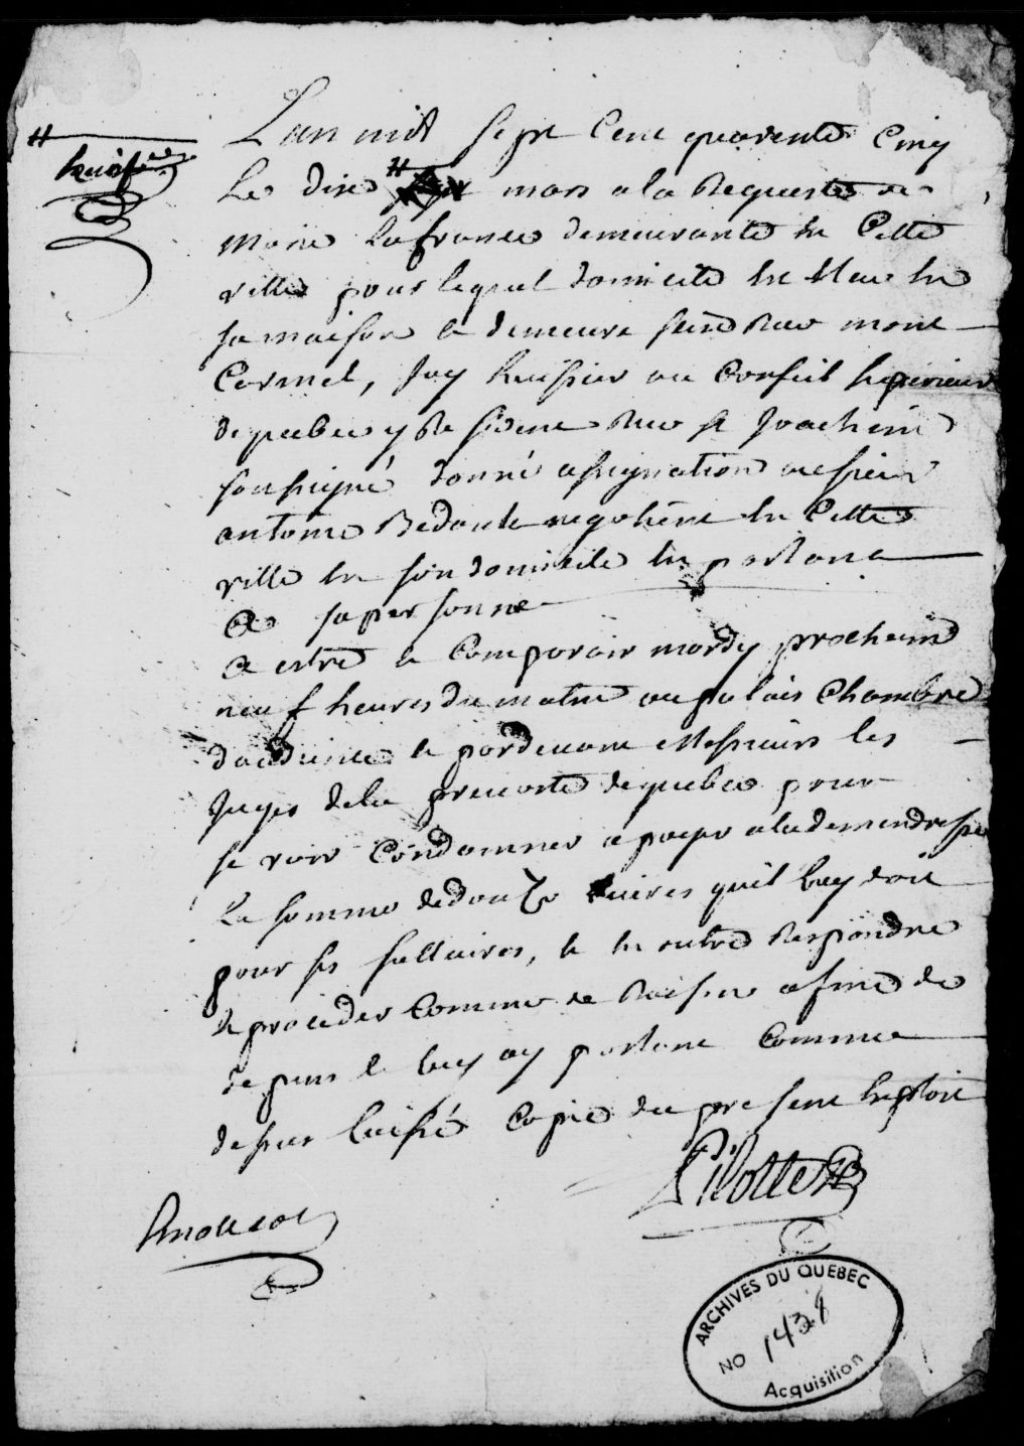 L'an mil sept Cent quarente Cinq
Le dixe # mars a la Requeste de
Marie Lafrance demeurante En Cette
ville pour lequel domicile En Elue En
sa maison & demeure scize Rue mont
Carmel, Jay huissier au Conseil superieur
de quebec y Residene Rue st Joachim
soussigné donné assignation au sieur
antoine Bedoute negotient En Cette
ville En son domicile En parlant
a sa personne
a estre & Comparoir mardy prochain
neuf heures du matin au palais Chambre
daudience & pardevant Messieurs les
Juges de la prevosté de quebec pour
se voir Condamner a payer a la demendresse
La somme de douze Livres quil Luy doit
pour ses sallaires, & En outre Respondre
& proceder Comme de Raison afin de
depens & Luy ay parlant Comme
dessus laissé Copie du present Exploit
#
huit
Pilotte
ARCHIVES DU QUEBEC
NO 1438
Acquisition